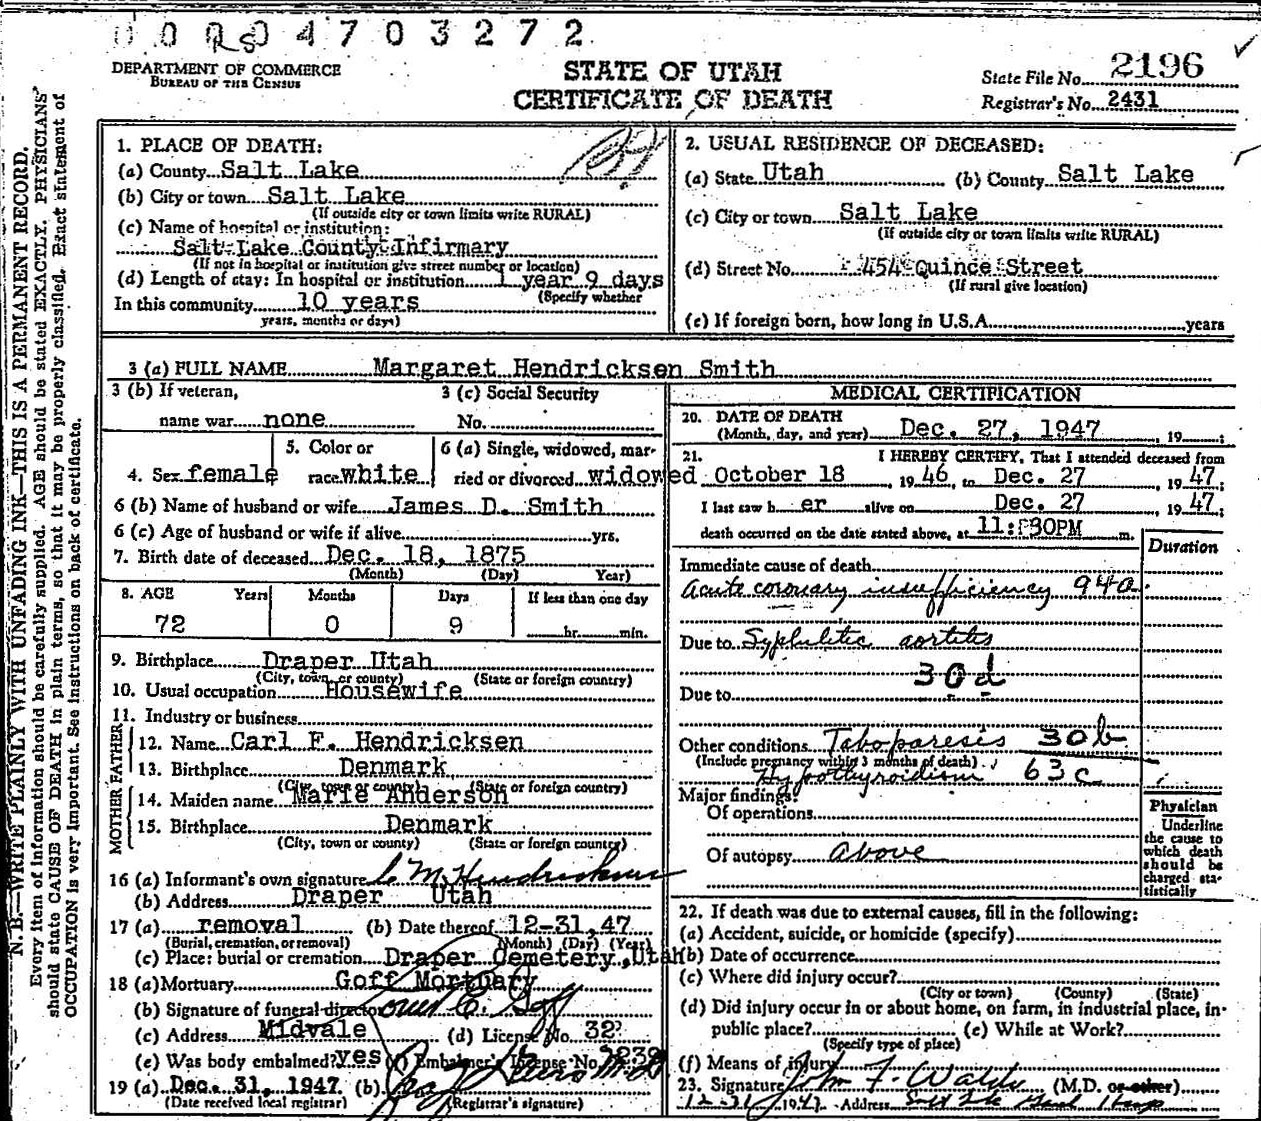 0 0 0 0 4 7 0 3 2 7 2
DEPARTMENT OF COMMERCE
BUREAU OF THE CENSUS
STATE OF UTAH
CERTIFICATE OF DEATH
State File No. 2196
Registrar's No. 2431
N. B.—WRITE PLAINLY WITH UNFADING INK—THIS IS A PERMANENT RECORD.
Every item of information should be carefully supplied. AGE should be stated EXACTLY. PHYSICIANS
should state CAUSE OF DEATH in plain terms, so that it may be properly classified. Exact statement of
OCCUPATION is very important. See instructions on back of certificate.
1. PLACE OF DEATH:
(a) County Salt Lake
(b) City or town Salt Lake
(If outside city or town limits write RURAL)
(c) Name of hospital or institution:
Salt Lake County Infirmary
(If not in hospital or institution give street number or location)
(d) Length of stay: In hospital or institution 1 year 9 days
(Specify whether
In this community 10 years
years, months or days)
2. USUAL RESIDENCE OF DECEASED:
(a) State Utah (b) County Salt Lake
(c) City or town Salt Lake
(If outside city or town limits write RURAL)
(d) Street No. 454 Quince Street
(If rural give location)
(e) If foreign born, how long in U.S.A. years
3 (a) FULL NAME Margaret Hendricksen Smith
3 (b) If veteran, 3 (c) Social Security
name war none No.
4. Sex female 5. Color or race white 6 (a) Single, widowed, married or divorced widowed
6 (b) Name of husband or wife James D. Smith
6 (c) Age of husband or wife if alive yrs.
7. Birth date of deceased Dec. 18, 1875
(Month) (Day) Year)
8. AGE Years Months Days If less than one day
72 0 9 hr. min.
9. Birthplace Draper Utah
(City, town, or county) (State or foreign country)
10. Usual occupation Housewife
11. Industry or business
FATHER
12. Name Carl F. Hendricksen
13. Birthplace Denmark
(City, town or county) (State or foreign country)
MOTHER
14. Maiden name Marie Anderson
15. Birthplace Denmark
(City, town or county) (State or foreign country)
16 (a) Informant's own signature C M Hendricksen
(b) Address Draper Utah
17 (a) removal (b) Date thereof 12-31, 47
(Burial, cremation, or removal) (Month) (Day) (Year)
(c) Place: burial or cremation Draper Cemetery, Utah
18 (a) Mortuary Goff Mortuary
(b) Signature of funeral director Goff
(c) Address Midvale (d) License No. 32
(e) Was body embalmed? yes (f) Embalmer's License No. 239
19 (a) Dec. 31, 1947 (b)
(Date received local registrar) (Registrar's signature)
MEDICAL CERTIFICATION
20. DATE OF DEATH
(Month, day, and year) Dec. 27, 1947, 19 ;
21. I HEREBY CERTIFY, That I attended deceased from
October 18, 19 46, to Dec. 27, 19 47;
I last saw h er alive on Dec. 27, 19 47;
death occurred on the date stated above, at 11:30PM m.
Duration
Immediate cause of death
Acute coronary insufficiency 94a
Due to Syphilitic aortitis
30d
Due to
Other conditions Taboparesis 30b
(Include pregnancy within 3 months of death)
Hypothyroidism 63c
Major findings:
Of operations
Of autopsy above
Physician
Underline
the cause to
which death
should be
charged sta-
tistically
22. If death was due to external causes, fill in the following:
(a) Accident, suicide, or homicide (specify)
(b) Date of occurrence
(c) Where did injury occur?
(City or town) (County) (State)
(d) Did injury occur in or about home, on farm, in industrial place, in
public place? (e) While at Work?
(Specify type of place)
(f) Means of injury
23. Signature John F. Waldo (M.D. or other)
12-31 1947 Address Salt Lake Genl Hosp